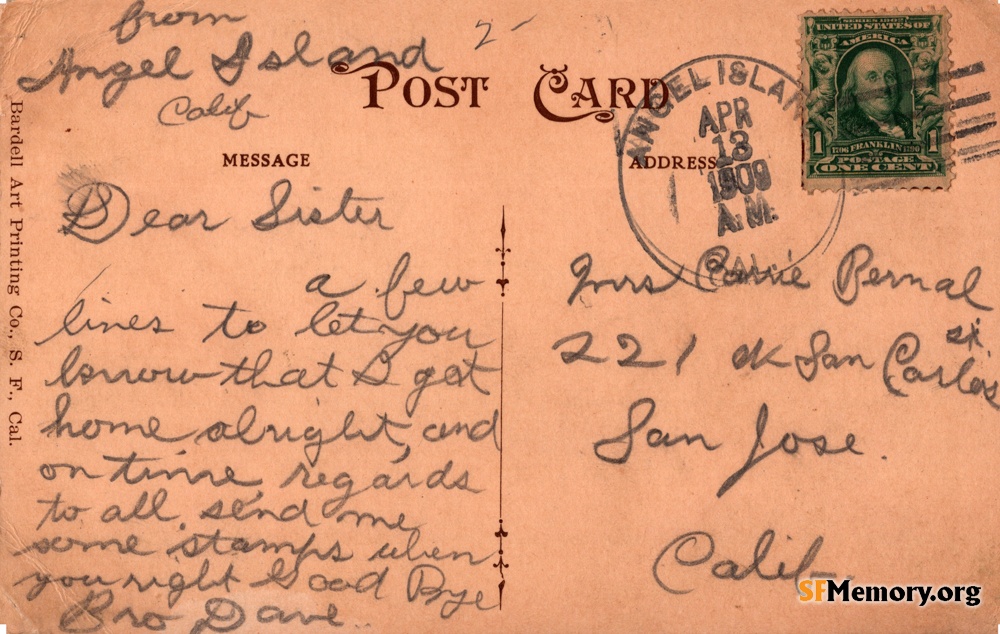 from
Angel Island
Calif
2-
POST CARD
MESSAGE
ADDRESS
ANGEL ISLAN
APR
13
1909
A.M.
CAL.
SERIES 1902
UNITED STATES OF
AMERICA
1 1
1706 FRANKLIN 1790
POSTAGE
ONE CENT
Bardell Art Printing Co., S. F., Cal.
Dear Sister
a few
lines to let you
know that I got
home alright, and
on time, regards
to all, send me
some stamps when
you right Good Bye
Bro Dave
Mrs Carrie Bernal
221 San Carlos
st.
San Jose.
Calif
SFMemory.org